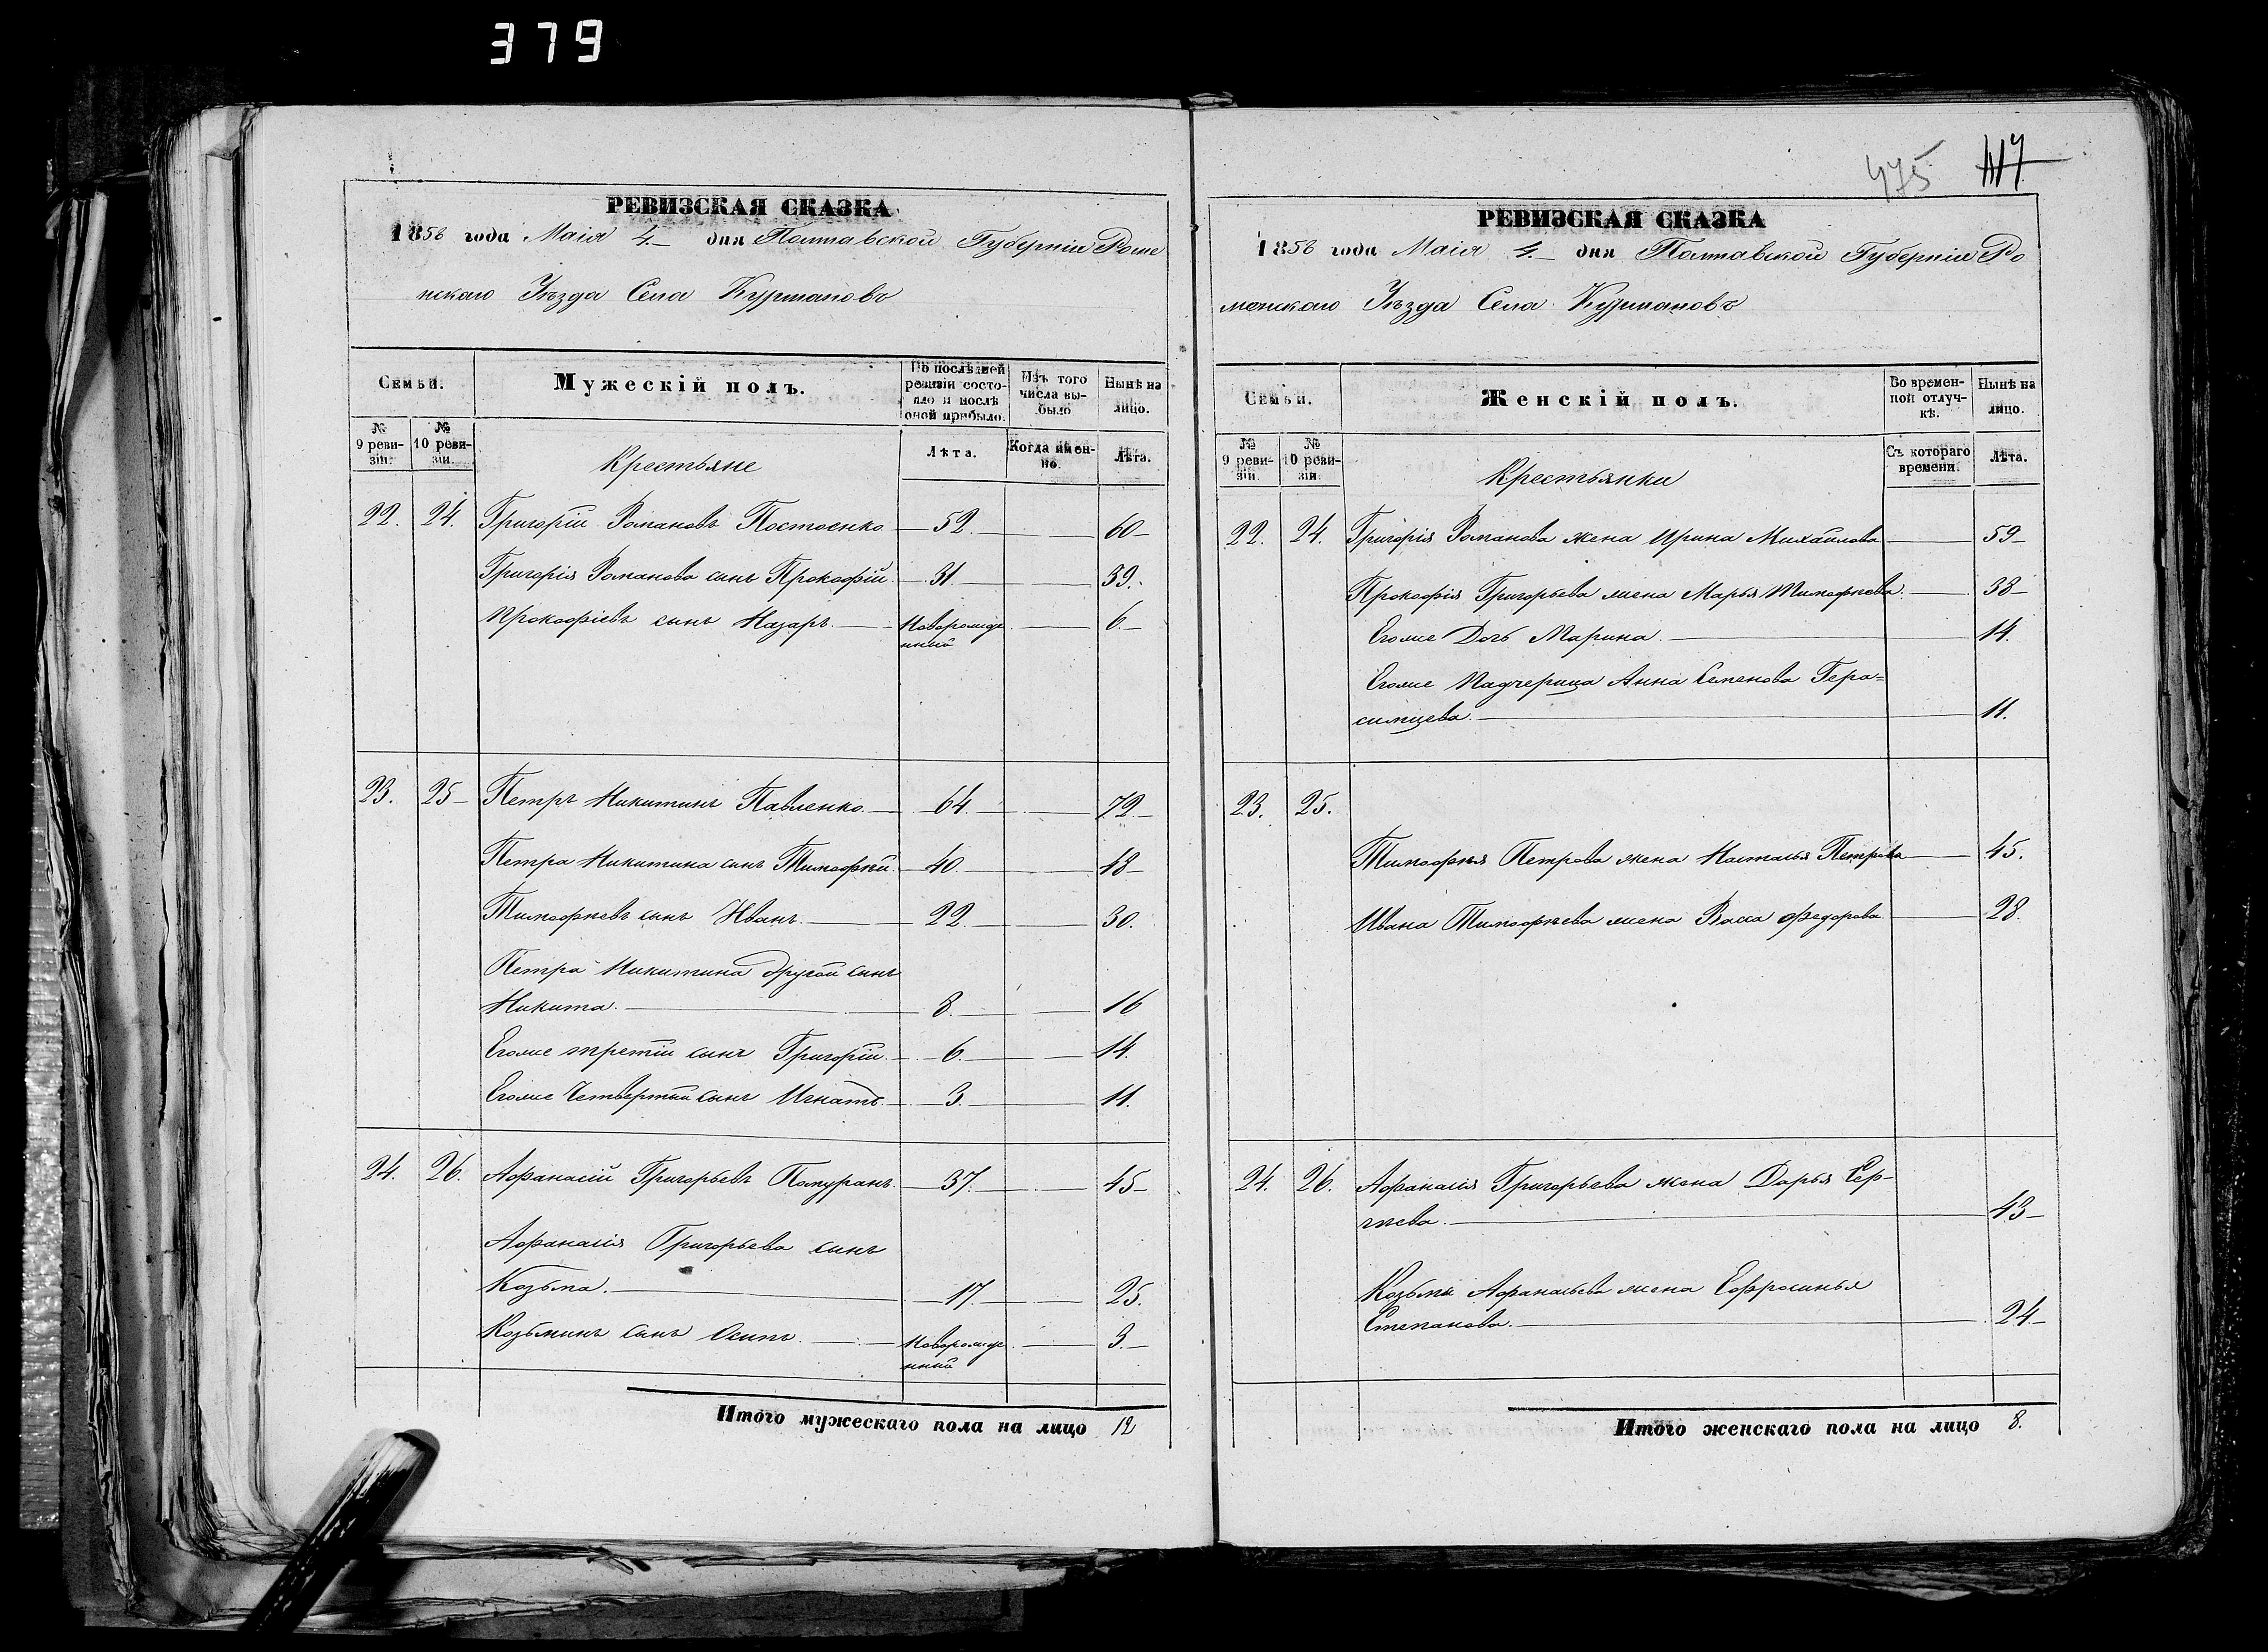 379
РЕВИЗСКАЯ СКАЗКА
1858 года Маія 4 дня Полтавской Губерніи Роме
нскаго Уѣзда Села Курмановъ
Семьи.
Мужескій полъ.
По послѣдней ревизіи состояло и послѣ оной прибыло.
Изъ того числа выбыло
Нынѣ на лицо.
№ 9 ревизіи.
№ 10 ревизіи.
Крестьяне
Лѣта.
Когда именно.
Лѣта.
22. 24. Григорій Романовъ Постоенко 52. 60
Григорія Романова сынъ Прокофій 31. 39.
Прокофіевъ сынъ Назаръ. Новорожде 6.
нный
23. 25 Петръ Никитинъ Павленко 64. 72.
Петра Никитина сынъ Тимофѣй. 40. 48
Тимофѣевъ сынъ Иванъ. 22. 30.
Петра Никитина другой сынъ
Никита. 8. 16
Егоже третій сынъ Григорій. 6. 14.
Егоже Четвертый сынъ Игнатъ. 3. 11.
24. 26. Афанасій Григорьевъ 37. 45
Афанасія Григорьева сынъ
Козьма. 17. 25.
Козьминъ сынъ Осипъ. Новорожде 3.
нный
Итого мужескаго пола на лицо 12
475 117
РЕВИЗСКАЯ СКАЗКА
1858 года Маія 4. дня Полтавской Губерніи Ро
менскаго Уѣзда Села Курмановъ
Семьи.
Женскій полъ.
Во временной отлучкѣ.
Нынѣ на лицо.
№ 9 ревизіи.
№ 10 ревизіи.
Крестьянки
Съ котораго времени.
Лѣта.
22. 24. Григорія Романова жена Ирина Михайлова 59
Прокофія Григорьева жена Марья Тимофѣева. 38
Егоже Дочь Марина. 14.
Егоже Падчерица Анна Семенова Гера=
симцева. 11.
23. 25.
Тимофѣя Петрова жена Настасья Петрова 45.
Ивана Тимофѣева жена Васа Федорова 28.
24. 26. Афанасія Григорьева жена Дарья Сер-
гѣева. 43
Козьмы Афанасьева жена Ефросинья
Степанова. 24
Итого женскаго пола на лицо 8.